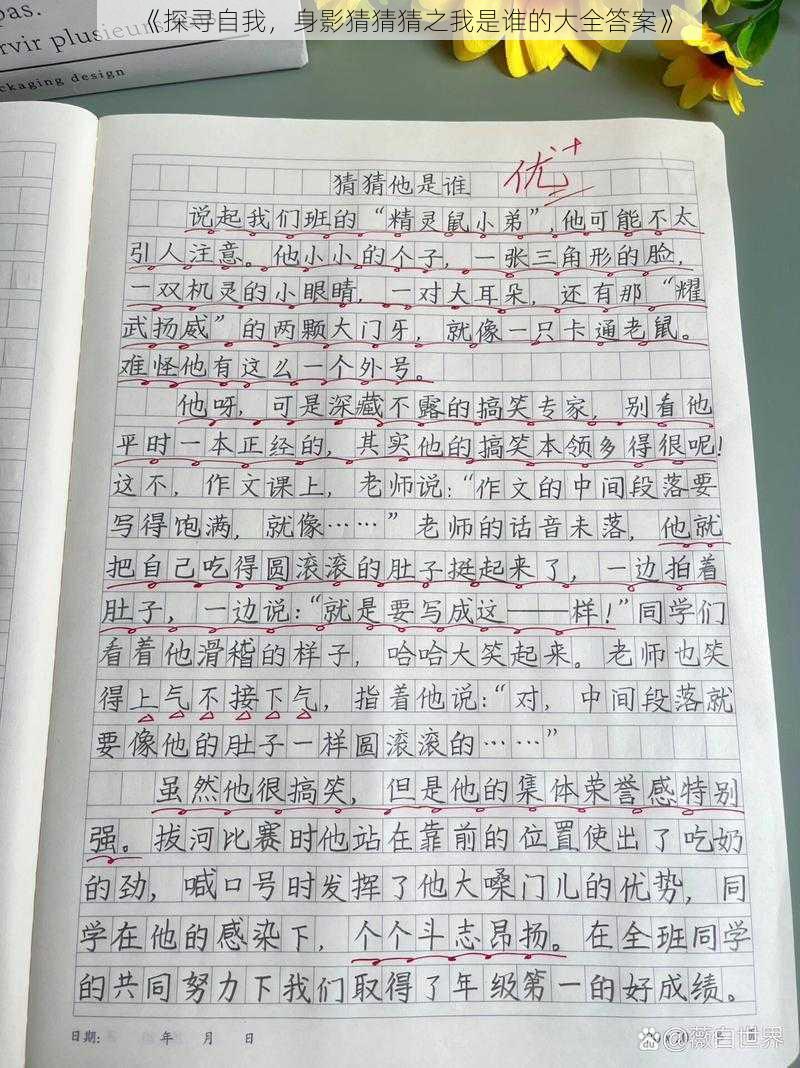 《探寻自我，身影猜猜猜之我是谁的大全答案》
pas.
rvir plusieurs
ackaging design
猜猜他是谁 优+
说起我们班的“精灵鼠小弟”，他可能不太
引人注意。他小小的个子，一张三角形的脸，
一双机灵的小眼睛，一对大耳朵，还有那“耀
武扬威”的两颗大门牙，就像一只卡通老鼠。
难怪他有这么一个外号。
他呀，可是深藏不露的搞笑专家，别看他
平时一本正经的，其实他的搞笑本领多得很呢！
这不，作文课上，老师说：“作文的中间段落要
写得饱满，就像……”老师的话音未落，他就
把自己吃得圆滚滚的肚子挺起来了，一边拍着
肚子，一边说：“就是要写成这——样！”同学们
看着他滑稽的样子，哈哈大笑起来。老师也笑
得上气不接下气，指着他说：“对，中间段落就
要像他的肚子一样圆滚滚的……”
虽然他很搞笑，但是他的集体荣誉感特别
强。拔河比赛时他站在靠前的位置使出了吃奶
的劲，喊口号时发挥了他大嗓门儿的优势，同
学在他的感染下，个个斗志昂扬。在全班同学
的共同努力下我们取得了年级第一的好成绩。
日期： 年 月 日
Bai @薇白世界